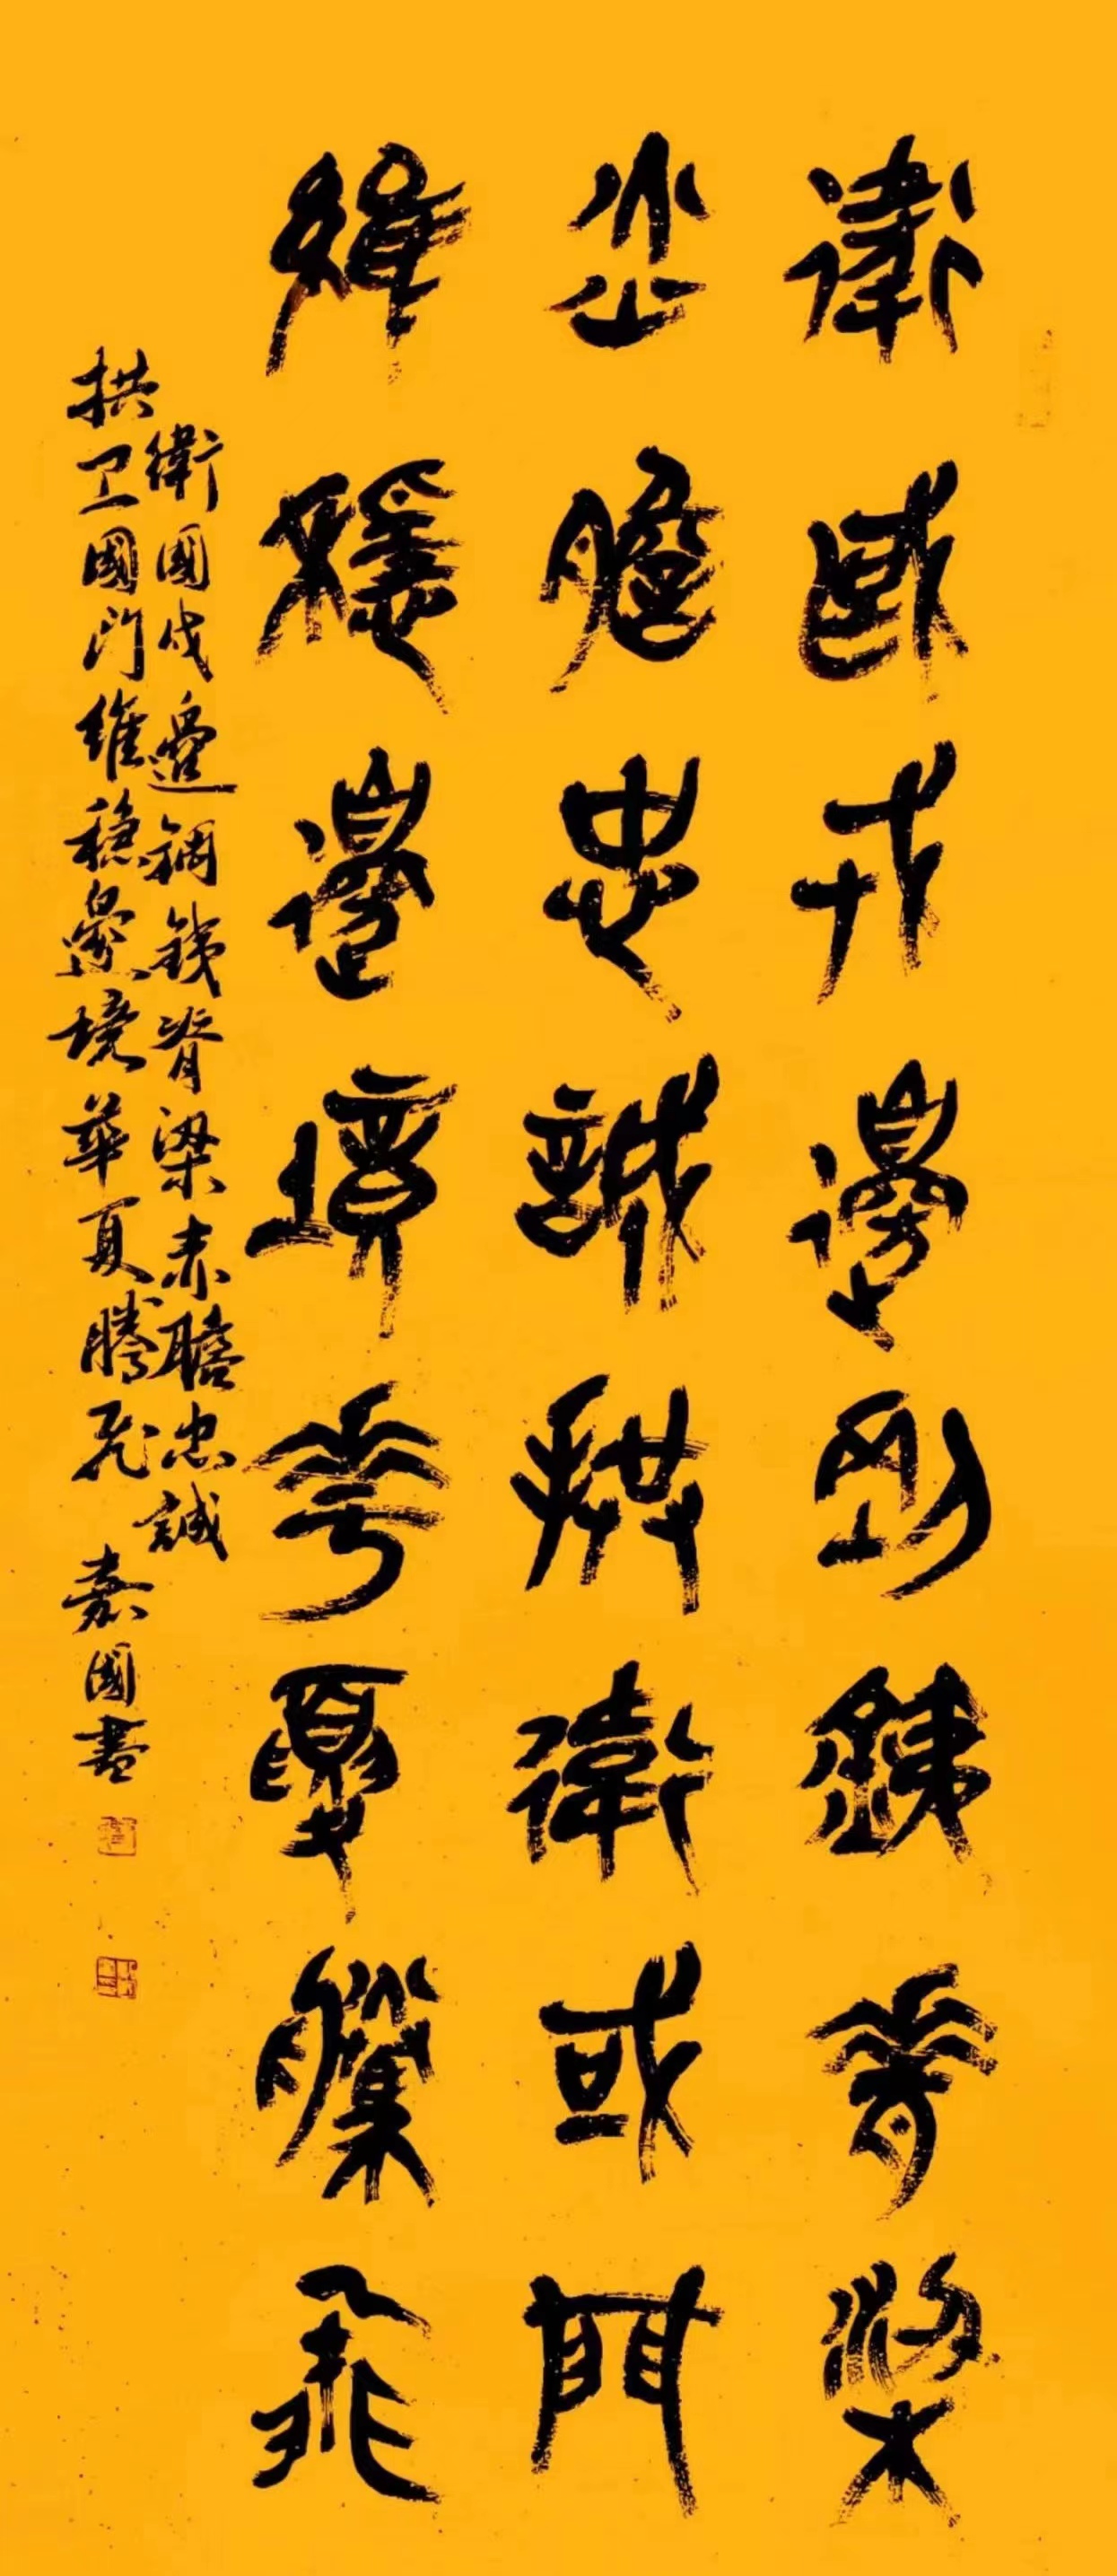 衛國戍邊剛鐵脊梁
赤膽忠誠拱衛或門
維穩邊境華夏騰飛
衛國戍邊鋼鐵脊梁赤膽忠誠
拱卫國门維穏邊境華夏騰飛嘉國書